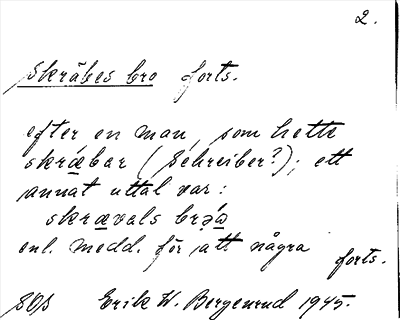 2.
Skräbes bro forts.
efter en man, som hette
skräbar (Schreiber?); ett
annat uttal var:
skrævals
enl. medd. för att några
forts.
Erik W. Bergenrud 1945.